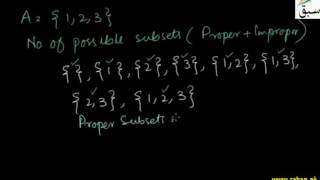 سبق
A = {1,2,3}
No of possible subsets (Proper + Improper)
{ }, {1}, {2}, {3}, {1,2}, {1,3},
{2,3}, {1,2,3}
Proper Subsets :
www.sabaq.pk